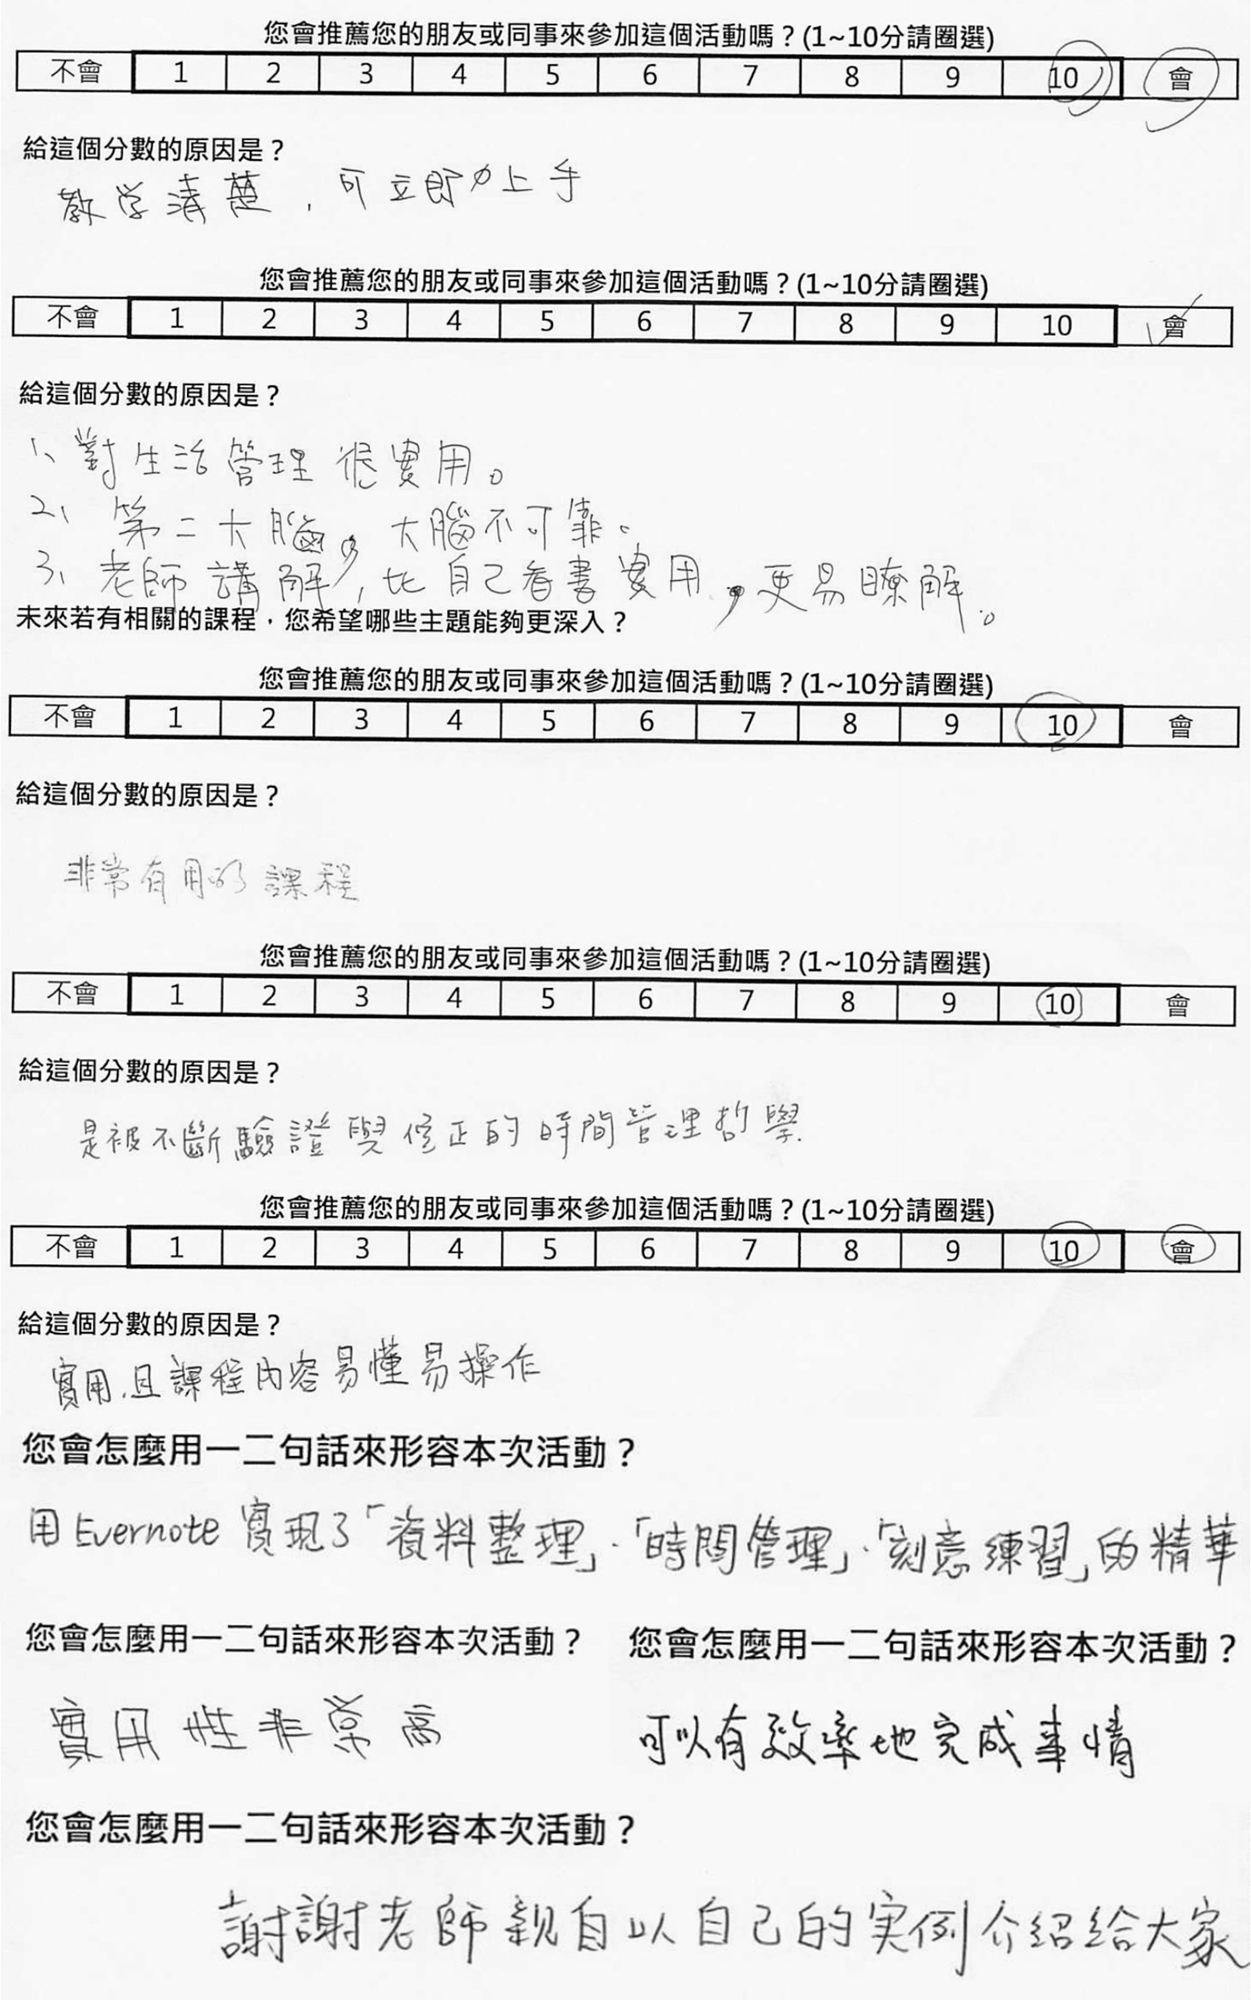 您會推薦您的朋友或同事來參加這個活動嗎？(1~10分請圈選)
不會 1 2 3 4 5 6 7 8 9 10 會
給這個分數的原因是？
教学清楚，可立即上手
您會推薦您的朋友或同事來參加這個活動嗎？(1~10分請圈選)
不會 1 2 3 4 5 6 7 8 9 10 會
給這個分數的原因是？
1、對生活管理很實用。
2、第二大腦，大腦不可靠。
3、老師講解，比自己看書實用，更易瞭解。
未來若有相關的課程，您希望哪些主題能夠更深入？
您會推薦您的朋友或同事來參加這個活動嗎？(1~10分請圈選)
不會 1 2 3 4 5 6 7 8 9 10 會
給這個分數的原因是？
非常有用的課程
您會推薦您的朋友或同事來參加這個活動嗎？(1~10分請圈選)
不會 1 2 3 4 5 6 7 8 9 10 會
給這個分數的原因是？
是被不斷驗證與修正的時間管理哲學
您會推薦您的朋友或同事來參加這個活動嗎？(1~10分請圈選)
不會 1 2 3 4 5 6 7 8 9 10 會
給這個分數的原因是？
實用，且課程內容易懂易操作
您會怎麼用一二句話來形容本次活動？
用Evernote實現了「資料整理」、「時間管理」、「刻意練習」的精華
您會怎麼用一二句話來形容本次活動？
實用性非常高
您會怎麼用一二句話來形容本次活動？
可以有效率地完成事情
您會怎麼用一二句話來形容本次活動？
謝謝老師親自以自己的実例介紹給大家